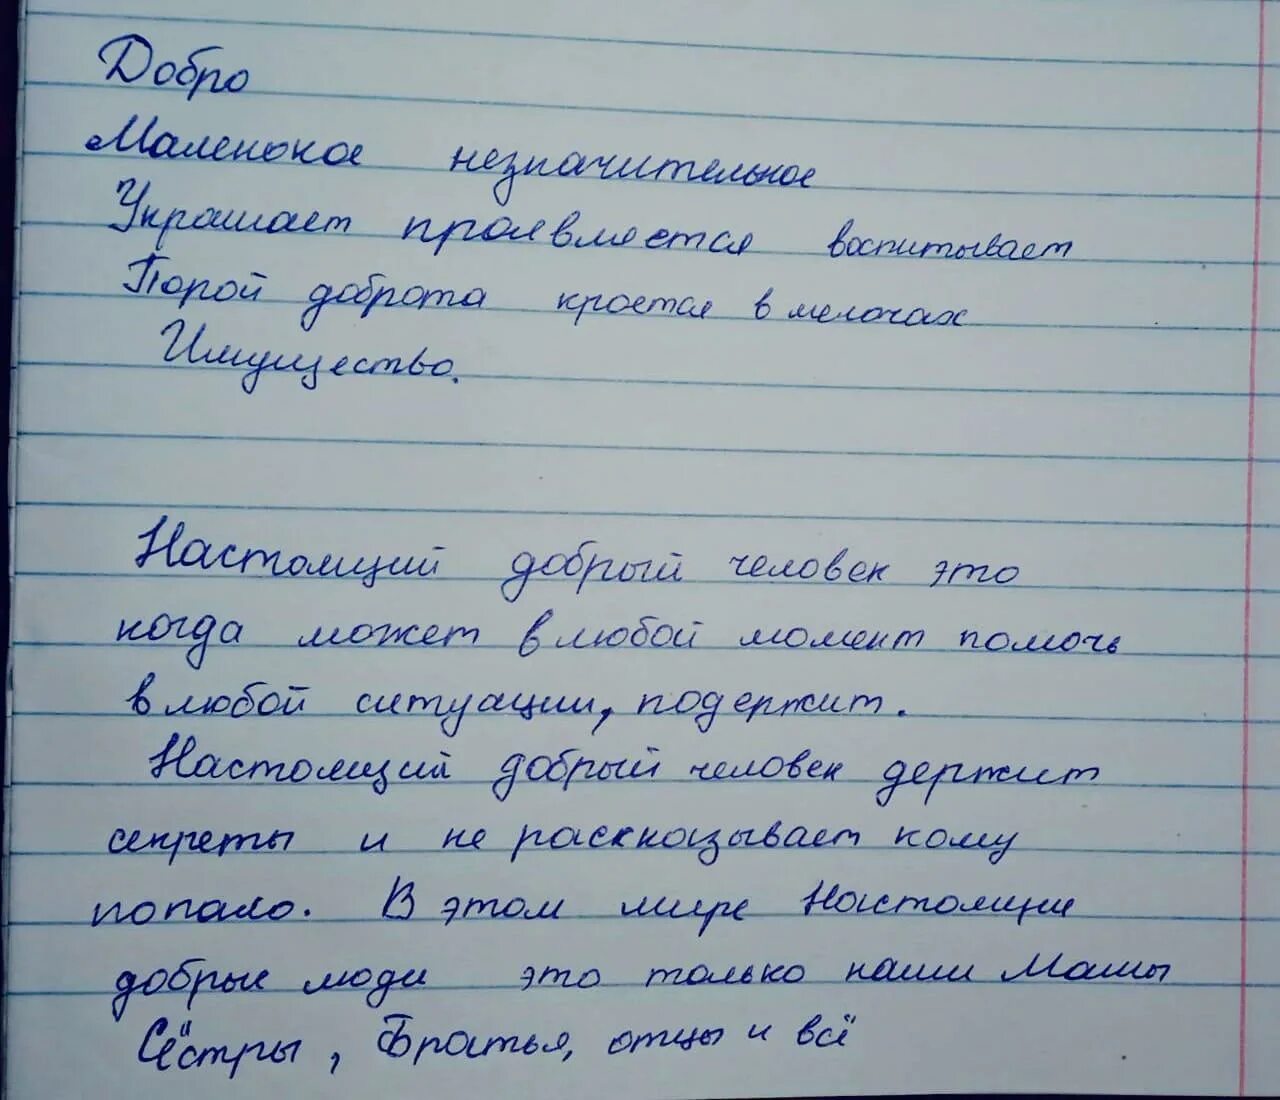 Добро
Маленькое незначительное
Украшает проявляется воспитывает
Порой доброта кроется в мелочах
Имущество.
Настоящий добрый человек это
когда может в любой момент помочь
в любой ситуации, подержит.
Настоящий добрый человек держит
секреты и не раскказывает кому
попало. В этом мире Настоящие
добрые люди это только наши Мамы
Сёстры, Братья, отцы и всё